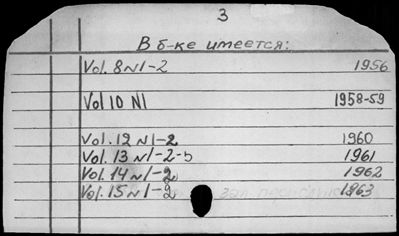 3
В б-ке имеется:
Vol. 8 N1-2 1956
Vol 10 N1 1958-59
Vol. 12 N1-2 1960
Vol. 13 N1-2-3 1961
Vol. 14 N1-2 1962
Vol. 15 N1-2 1963